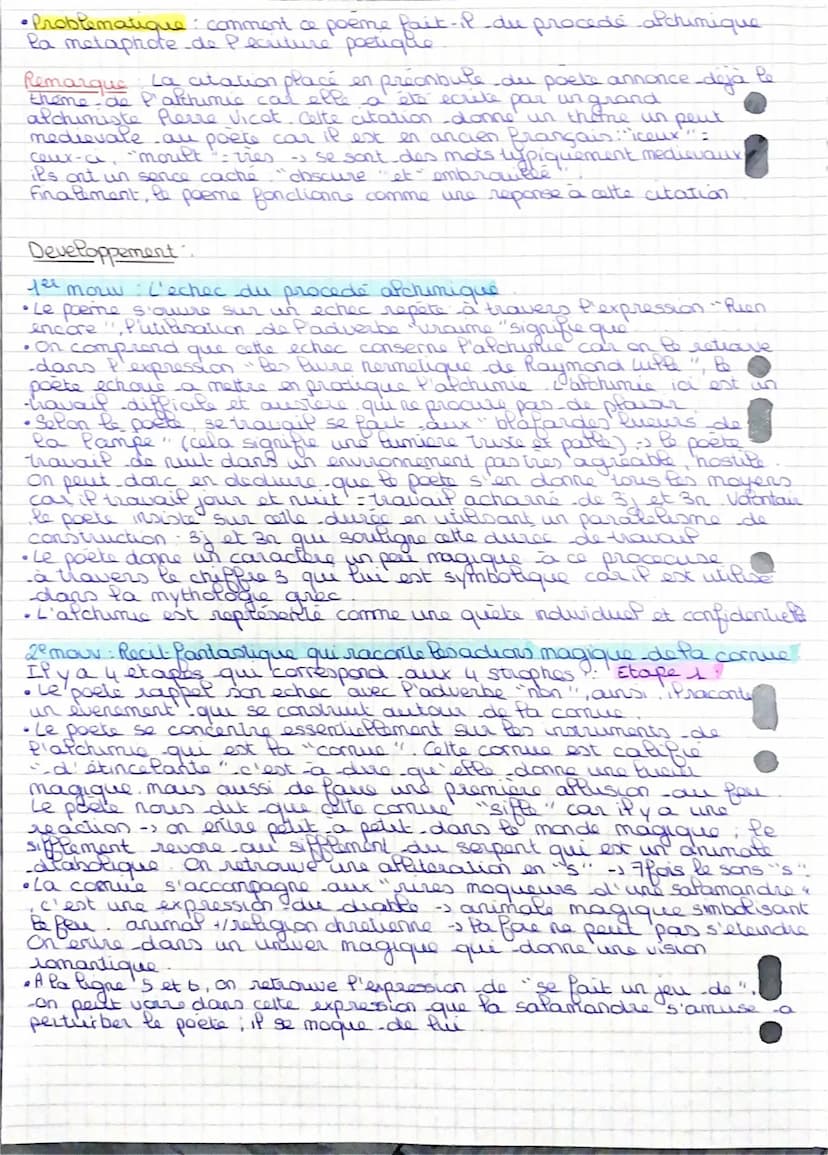 • Problématique : comment ce poème fait-il du procédé alchimique
la métaphore de l'écriture poétique.
Remarque : La citation placé en préonbule du poète annonce déjà le
thème de l'alchimie car elle a été ecrite par un grand
alchimiste Pierre Vicot. Cette citation donne un thème un peu
medievale au poète car il est en ancien français : "iceux" =
ceux-ci, "moult" = très -> se sont des mots typiquement medievaux
ils ont un sence caché, "obscure" et "embrouillé".
Finalement, le poème fonctionne comme une reponse à cette citation
Developpement :
1er mouv : L'echec du procedé alchimique
• Le poème s'ouvre sur un echec repète à travers l'expression "Rien
encore", l'utilisation de l'adverbe "vraime" signifie que
• On comprend que cette echec conserne l'alchimie car on le retrouve
dans l'expression "les livre hermetique de Raymond Lulle", le
poète echoue a mettre en pratique l'alchimie. L'alchimie ici est un
travail difficile et austère qui ne procure pas de plaisir.
• Selon le poète, se travail se fait aux "blafardes lueurs de
la lampe" (cela signifie une lumière triste et palle) -> le poète
travail de nuit dans un environnement pas tres agréable, hostile.
On peut donc en deduire que le poète s'en donne tous les moyens
car il travail jour et nuit = travail acharné de 3j et 3n. Volontaire
le poète insiste sur cette durée en utilisant un paralelisme de
construction : 3j et 3n qui souligne cette duree de travail
• Le poète donne un caractère un peu magique à ce processuse
à travers le chiffre 3 qui lui est symbolique car il est utilisé
dans la mythologie grec.
• L'alchimie est représenté comme une quète individuel et confidentielle
2e mouv : Recit fantastique qui raconte les actions magique de la cornue
Il y a 4 etapes qui correspond aux 4 strophes : Etape 1 :
• Le poète rappel son echec avec l'adverbe "non", ainsi, il raconte
un evenement qui se construit autour de la cornue.
• Le poète se concentre essentiellement sur les instruments de
l'alchimie qui est la "cornue". Cette cornue est califié
"d'étincelante" c'est-à-dire qu'elle donne une lueur
magique mais aussi de faire une première allusion au feu.
Le poète nous dit que cette cornue "siffle" car il y a une
reaction -> on entre petit a petit dans le monde magique, le
sifflement revoie au sifflement du serpent qui est un animale
diabolique. On retrouve une alliteration en "s" -> 7 fois le sons "s".
• La cornue s'accompagne aux "rires moqueurs d'une salamandre"
, c'est une expression du diable -> animale magique simbolisant
le feu. animal +/religion chretienne -> la foie ne peut pas s'eteindre
On entre dans un univer magique qui donne une vision
romantique.
• A la ligne 5 et 6, on retrouve l'expression de "se fait un jeu de",
on peut voire dans cette expression que la salamandre s'amuse a
perturber le poète ; il se moque de lui